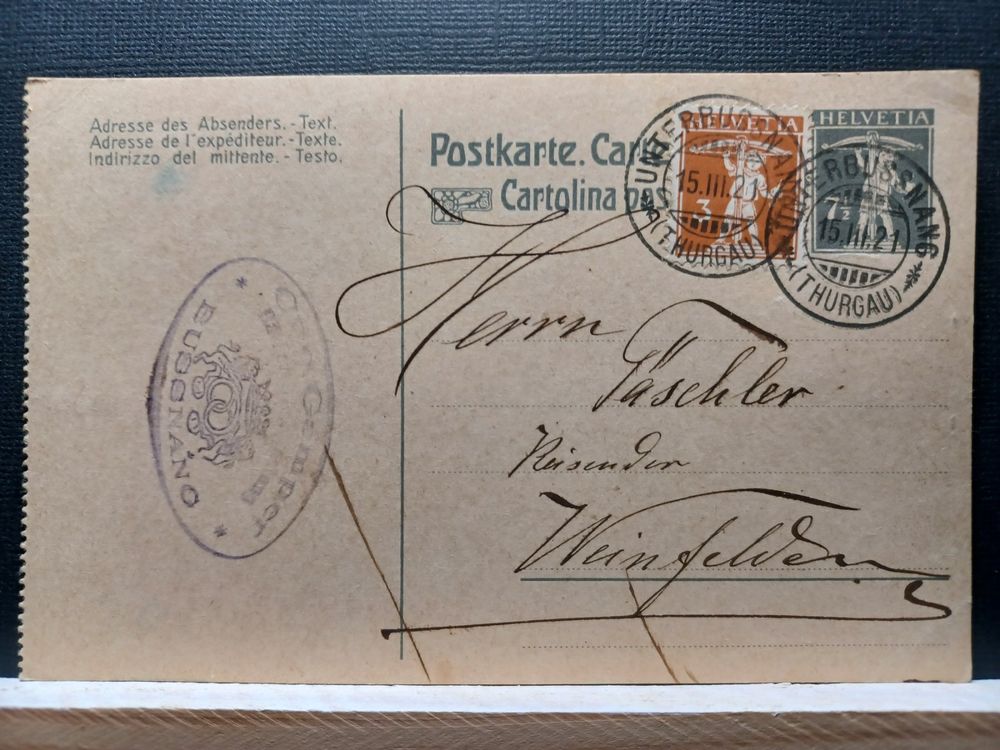 Adresse des Absenders. - Text.
Adresse de l'expéditeur. - Texte.
Indirizzo del mittente. - Testo.
Postkarte. Cart
Cartolina po
HELVETIA
3
HELVETIA
7½
UNTERBUSSNANG
15.III.21
(THURGAU)
UNTERBUSSNANG
15.III.21
(THURGAU)
Herrn
Täschler
Reisender
Weinfelden
Gamper
BUSSNANG